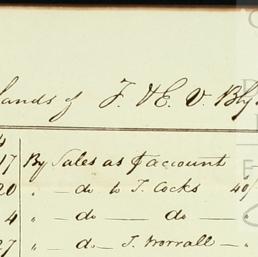 lands of F. & E. V. Bly
17 By Sales as ⅌ account
20 " - do to J. Cocks 40/
4 " - do — do —
27 " - do - J. Worrall - "